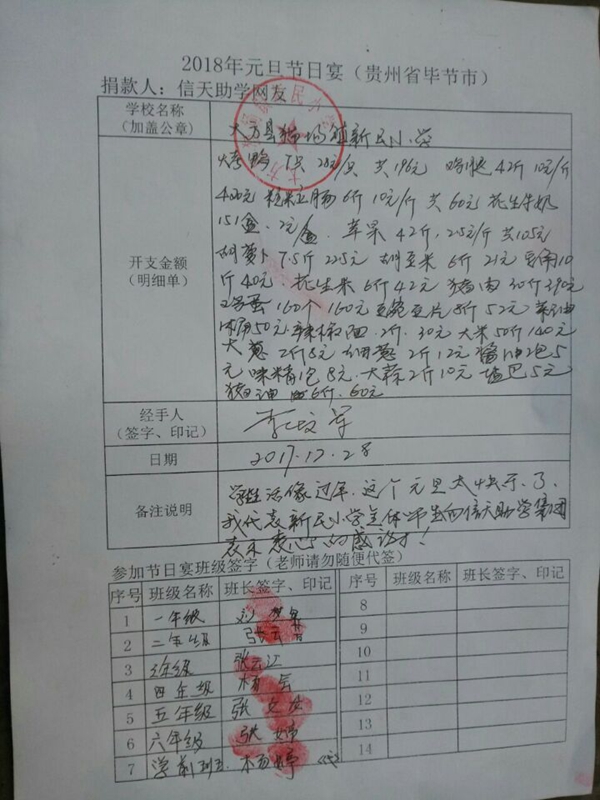 2018年元旦节日宴（贵州省毕节市）
捐款人：信天助学网友
学校名称
（加盖公章）
大方县猫场镇新民小学
开支金额
（明细单）
烤鸭 7只 28元/只 共196元 鸡腿 42斤 10元/斤
420元 粒粒肠 6斤 10元/斤 共60元 花生牛奶
151盒 2元/盒 苹果 42斤 2.5元/斤 共105元
胡萝卜 7.5斤 22.5元 胡豆米 6斤 21元 豆角10
斤40元 花生米 6斤 42元 猪肉 30斤 390元
鸡蛋 160个 160元 豌豆片 8斤 52元 菜油
1桶50元 辣椒面 2斤 30元 大米 50斤 140元
大葱 2斤8元 细葱 2斤 12元 酱油2包5
元 味精1包 8元 大蒜2斤10元 盐巴5元
猪油 6斤 60元
经手人
（签字、印记）
日期
2017.12.28
备注说明
学生活像过年，这个元旦太快乐了，
我代表新民小学全体师生向信天助学集团
表示衷心的感谢！
参加节日宴班级签字（老师请勿随便代签）
序号 班级名称 班长签字、印记 序号 班级名称 班长签字、印记
1 一年级 8
2 二年级 9
3 三年级 张云江 10
4 四年级 杨 11
5 五年级 张 12
6 六年级 张 13
7 学前班 杨 14